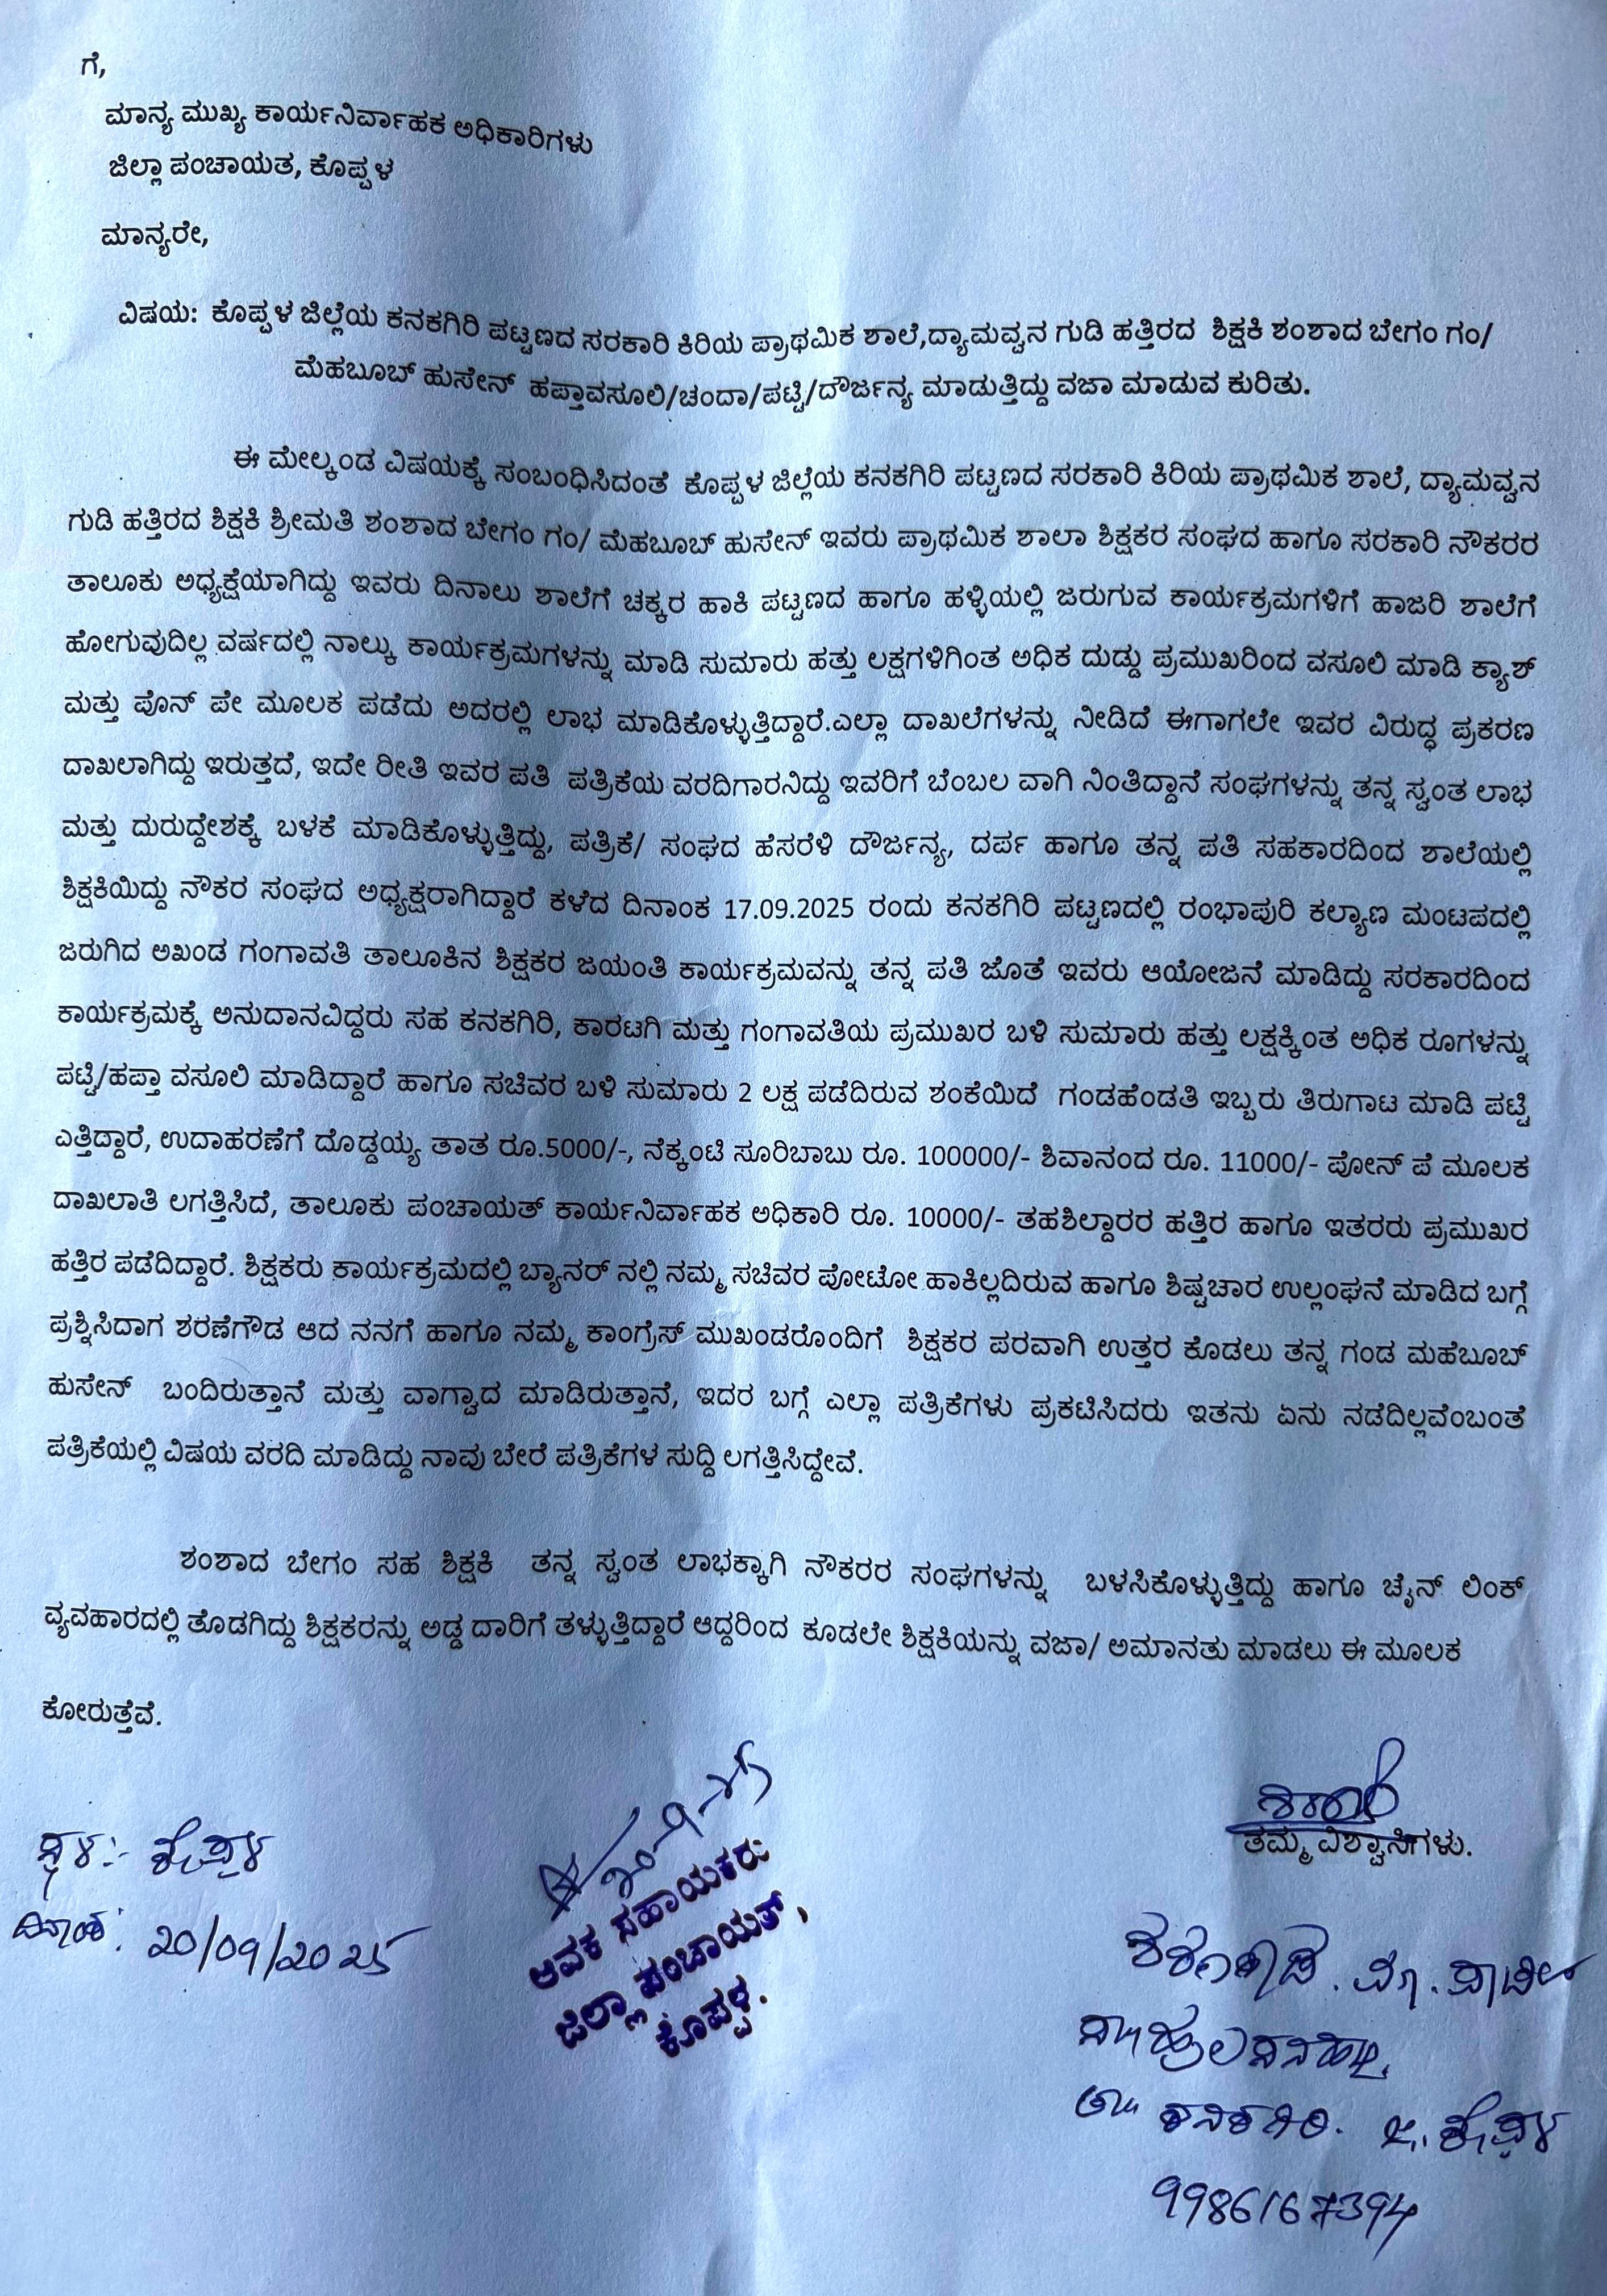 ಗೆ,
ಮಾನ್ಯ ಮುಖ್ಯ ಕಾರ್ಯನಿರ್ವಾಹಕ ಅಧಿಕಾರಿಗಳು
ಜಿಲ್ಲಾ ಪಂಚಾಯತ, ಕೊಪ್ಪಳ
ಮಾನ್ಯರೇ,
ವಿಷಯ: ಕೊಪ್ಪಳ ಜಿಲ್ಲೆಯ ಕನಕಗಿರಿ ಪಟ್ಟಣದ ಸರಕಾರಿ ಕಿರಿಯ ಪ್ರಾಥಮಿಕ ಶಾಲೆ,ದ್ಯಾಮವ್ವನ ಗುಡಿ ಹತ್ತಿರದ ಶಿಕ್ಷಕಿ ಶಂಶಾದ ಬೇಗಂ ಗಂ/
ಮೆಹಬೂಬ್ ಹುಸೇನ್ ಹಪ್ತಾವಸೂಲಿ/ಚಂದಾ/ಪಟ್ಟಿ/ದೌರ್ಜನ್ಯ ಮಾಡುತ್ತಿದ್ದು ವಜಾ ಮಾಡುವ ಕುರಿತು.
ಈ ಮೇಲ್ಕಂಡ ವಿಷಯಕ್ಕೆ ಸಂಬಂಧಿಸಿದಂತೆ ಕೊಪ್ಪಳ ಜಿಲ್ಲೆಯ ಕನಕಗಿರಿ ಪಟ್ಟಣದ ಸರಕಾರಿ ಕಿರಿಯ ಪ್ರಾಥಮಿಕ ಶಾಲೆ, ದ್ಯಾಮವ್ವನ
ಗುಡಿ ಹತ್ತಿರದ ಶಿಕ್ಷಕಿ ಶ್ರೀಮತಿ ಶಂಶಾದ ಬೇಗಂ ಗಂ/ ಮೆಹಬೂಬ್ ಹುಸೇನ್ ಇವರು ಪ್ರಾಥಮಿಕ ಶಾಲಾ ಶಿಕ್ಷಕರ ಸಂಘದ ಹಾಗೂ ಸರಕಾರಿ ನೌಕರರ
ತಾಲೂಕು ಅಧ್ಯಕ್ಷೆಯಾಗಿದ್ದು ಇವರು ದಿನಾಲು ಶಾಲೆಗೆ ಚಕ್ಕರ ಹಾಕಿ ಪಟ್ಟಣದ ಹಾಗೂ ಹಳ್ಳಿಯಲ್ಲಿ ಜರುಗುವ ಕಾರ್ಯಕ್ರಮಗಳಿಗೆ ಹಾಜರಿ ಶಾಲೆಗೆ
ಹೋಗುವುದಿಲ್ಲ ವರ್ಷದಲ್ಲಿ ನಾಲ್ಕು ಕಾರ್ಯಕ್ರಮಗಳನ್ನು ಮಾಡಿ ಸುಮಾರು ಹತ್ತು ಲಕ್ಷಗಳಿಗಿಂತ ಅಧಿಕ ದುಡ್ಡು ಪ್ರಮುಖರಿಂದ ವಸೂಲಿ ಮಾಡಿ ಕ್ಯಾಶ್
ಮತ್ತು ಪೊನ್ ಪೇ ಮೂಲಕ ಪಡೆದು ಅದರಲ್ಲಿ ಲಾಭ ಮಾಡಿಕೊಳ್ಳುತ್ತಿದ್ದಾರೆ.ಎಲ್ಲಾ ದಾಖಲೆಗಳನ್ನು ನೀಡಿದೆ ಈಗಾಗಲೇ ಇವರ ವಿರುದ್ಧ ಪ್ರಕರಣ
ದಾಖಲಾಗಿದ್ದು ಇರುತ್ತದೆ, ಇದೇ ರೀತಿ ಇವರ ಪತಿ ಪತ್ರಿಕೆಯ ವರದಿಗಾರನಿದ್ದು ಇವರಿಗೆ ಬೆಂಬಲ ವಾಗಿ ನಿಂತಿದ್ದಾನೆ ಸಂಘಗಳನ್ನು ತನ್ನ ಸ್ವಂತ ಲಾಭ
ಮತ್ತು ದುರುದ್ದೇಶಕ್ಕೆ ಬಳಕೆ ಮಾಡಿಕೊಳ್ಳುತ್ತಿದ್ದು, ಪತ್ರಿಕೆ/ ಸಂಘದ ಹೆಸರೆಳಿ ದೌರ್ಜನ್ಯ, ದರ್ಪ ಹಾಗೂ ತನ್ನ ಪತಿ ಸಹಕಾರದಿಂದ ಶಾಲೆಯಲ್ಲಿ
ಶಿಕ್ಷಕಿಯಿದ್ದು ನೌಕರ ಸಂಘದ ಅಧ್ಯಕ್ಷರಾಗಿದ್ದಾರೆ ಕಳೆದ ದಿನಾಂಕ 17.09.2025 ರಂದು ಕನಕಗಿರಿ ಪಟ್ಟಣದಲ್ಲಿ ರಂಭಾಪುರಿ ಕಲ್ಯಾಣ ಮಂಟಪದಲ್ಲಿ
ಜರುಗಿದ ಅಖಂಡ ಗಂಗಾವತಿ ತಾಲೂಕಿನ ಶಿಕ್ಷಕರ ಜಯಂತಿ ಕಾರ್ಯಕ್ರಮವನ್ನು ತನ್ನ ಪತಿ ಜೊತೆ ಇವರು ಆಯೋಜನೆ ಮಾಡಿದ್ದು ಸರಕಾರದಿಂದ
ಕಾರ್ಯಕ್ರಮಕ್ಕೆ ಅನುದಾನವಿದ್ದರು ಸಹ ಕನಕಗಿರಿ, ಕಾರಟಗಿ ಮತ್ತು ಗಂಗಾವತಿಯ ಪ್ರಮುಖರ ಬಳಿ ಸುಮಾರು ಹತ್ತು ಲಕ್ಷಕ್ಕಿಂತ ಅಧಿಕ ರೂಗಳನ್ನು
ಪಟ್ಟಿ/ಹಪ್ತಾ ವಸೂಲಿ ಮಾಡಿದ್ದಾರೆ ಹಾಗೂ ಸಚಿವರ ಬಳಿ ಸುಮಾರು 2 ಲಕ್ಷ ಪಡೆದಿರುವ ಶಂಕೆಯಿದೆ ಗಂಡಹೆಂಡತಿ ಇಬ್ಬರು ತಿರುಗಾಟ ಮಾಡಿ ಪಟ್ಟಿ
ಎತ್ತಿದ್ದಾರೆ, ಉದಾಹರಣೆಗೆ ದೊಡ್ಡಯ್ಯ ತಾತ ರೂ.5000/-, ನೆಕ್ಕಂಟಿ ಸೂರಿಬಾಬು ರೂ. 100000/- ಶಿವಾನಂದ ರೂ. 11000/- ಪೋನ್ ಪೆ ಮೂಲಕ
ದಾಖಲಾತಿ ಲಗತ್ತಿಸಿದೆ, ತಾಲೂಕು ಪಂಚಾಯತ್ ಕಾರ್ಯನಿರ್ವಾಹಕ ಅಧಿಕಾರಿ ರೂ. 10000/- ತಹಶಿಲ್ದಾರರ ಹತ್ತಿರ ಹಾಗೂ ಇತರರು ಪ್ರಮುಖರ
ಹತ್ತಿರ ಪಡೆದಿದ್ದಾರೆ. ಶಿಕ್ಷಕರು ಕಾರ್ಯಕ್ರಮದಲ್ಲಿ ಬ್ಯಾನರ್ ನಲ್ಲಿ ನಮ್ಮ ಸಚಿವರ ಪೋಟೋ ಹಾಕಿಲ್ಲದಿರುವ ಹಾಗೂ ಶಿಷ್ಟಚಾರ ಉಲ್ಲಂಘನೆ ಮಾಡಿದ ಬಗ್ಗೆ
ಪ್ರಶ್ನಿಸಿದಾಗ ಶರಣೆಗೌಡ ಆದ ನನಗೆ ಹಾಗೂ ನಮ್ಮ ಕಾಂಗ್ರೆಸ್ ಮುಖಂಡರೊಂದಿಗೆ ಶಿಕ್ಷಕರ ಪರವಾಗಿ ಉತ್ತರ ಕೊಡಲು ತನ್ನ ಗಂಡ ಮಹೆಬೂಬ್
ಹುಸೇನ್ ಬಂದಿರುತ್ತಾನೆ ಮತ್ತು ವಾಗ್ವಾದ ಮಾಡಿರುತ್ತಾನೆ, ಇದರ ಬಗ್ಗೆ ಎಲ್ಲಾ ಪತ್ರಿಕೆಗಳು ಪ್ರಕಟಿಸಿದರು ಇತನು ಏನು ನಡೆದಿಲ್ಲವೆಂಬಂತೆ
ಪತ್ರಿಕೆಯಲ್ಲಿ ವಿಷಯ ವರದಿ ಮಾಡಿದ್ದು ನಾವು ಬೇರೆ ಪತ್ರಿಕೆಗಳ ಸುದ್ದಿ ಲಗತ್ತಿಸಿದ್ದೇವೆ.
ಶಂಶಾದ ಬೇಗಂ ಸಹ ಶಿಕ್ಷಕಿ ತನ್ನ ಸ್ವಂತ ಲಾಭಕ್ಕಾಗಿ ನೌಕರರ ಸಂಘಗಳನ್ನು ಬಳಸಿಕೊಳ್ಳುತ್ತಿದ್ದು ಹಾಗೂ ಚೈನ್ ಲಿಂಕ್
ವ್ಯವಹಾರದಲ್ಲಿ ತೊಡಗಿದ್ದು ಶಿಕ್ಷಕರನ್ನು ಅಡ್ಡ ದಾರಿಗೆ ತಳ್ಳುತ್ತಿದ್ದಾರೆ ಆದ್ದರಿಂದ ಕೂಡಲೇ ಶಿಕ್ಷಕಿಯನ್ನು ವಜಾ/ ಅಮಾನತು ಮಾಡಲು ಈ ಮೂಲಕ
ಕೋರುತ್ತೆವೆ.
ತಮ್ಮ ವಿಶ್ವಾಸಿಗಳು.
ಸ್ಥಳ:- ಕೊಪ್ಪಳ
ದಿನಾಂಕ: 20/09/2025
ಆವಕ ಸಹಾಯಕರು
ಜಿಲ್ಲಾ ಪಂಚಾಯತ್,
ಕೊಪ್ಪಳ.
ಶರಣೇಗೌಡ. ಪಾಟೀಲ
ತಾ॥ ಕನಕಗಿರಿ. ಜಿ. ಕೊಪ್ಪಳ
9986167394